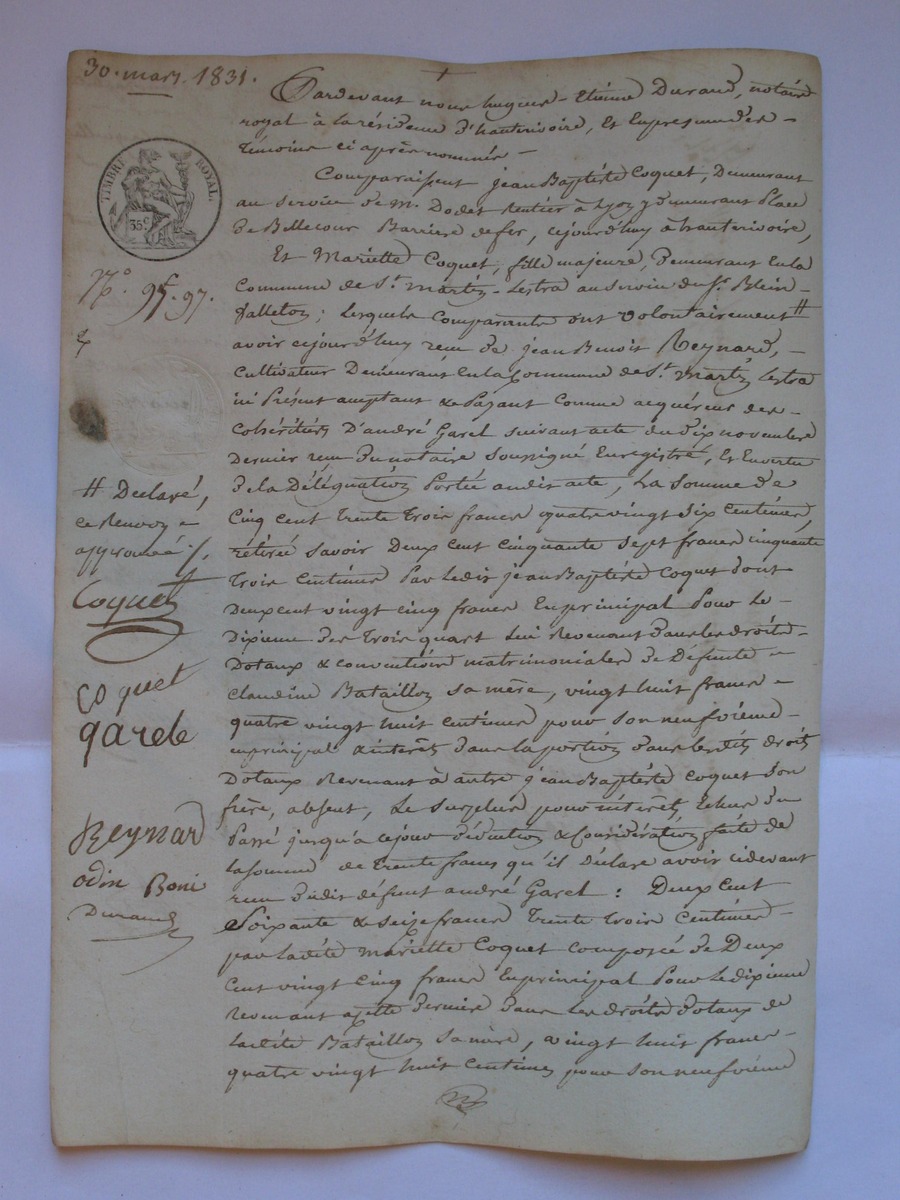 30. mars. 1831.
TIMBRE ROYAL.
35 C
N.º 95. 97.
Pardevant nous hugues-Etienne Durand, notaire
royal à la résidence d'hauterivoire, Et En présence des
témoins ci après nommés
Comparaissent jean Baptiste Coquet, Demeurant
au service de M. Dodet Rentier à Lyon y demeurant Place
De Bellecour Barriere de fer, cejourd'huy à hauterivoire,
Et Mariette Coquet, fille majeure, Demeurant En la
Commune de St. Martin-Lestra au service du Sr. Blein-
falleton; Lesquels Comparants ont volontairement #
avoir cejourd'huy reçu de jean Benoit Reynard,
Cultivateur Demeurant En la Commune de St. Martin Lestra
ici Présent acceptant & Payant Comme acquéreur des
Cohéritiers D'andré Garel suivant acte du dix novembre
Dernier reçu Du notaire Soussigné Enregistré, Et En vertu
De la Délégation Portée audit acte, La somme de
Cinq cent trente trois francs quatre vingt six Centimes,
rétirée Savoir Deux cent cinquante sept francs cinquante
trois Centimes Par Ledit jean Baptiste Coquet dont
Deux cent vingt cinq francs En principal Pour Le
Dixieme des trois quart lui Revenant Dans les droits
Dotaux & conventions matrimoniales De Défunte
Claudine Bataillon sa mère, vingt huit francs
quatre vingt huit centimes pour son neufvieme
en principal & intérêts dans la portion dans lesdits droits
Dotaux Revenant à autre jean Baptiste Coquet Son
frère, absent, Le surplus pour intérêts Echus du
Passé jusqu'à cejour Déduction & Considération faite de
la somme de trente francs qu'il Déclare avoir cidevant
reçu dudit défunt andré Garel : Deux Cent
Soixante & seize francs trente trois Centimes
par ladite Mariette Coquet composée de Deux
Cent vingt cinq francs En principal Pour Le dixieme
Revenant à cette Derniere Dans Les droits Dotaux de
ladite Bataillon sa mère, vingt huit francs
quatre vingt huit Centimes pour son neufvieme
# Declaré,
ce Renvoy
approuvé ./.
Coquet
coquet
garele
Reynard
odin Boni
Durand